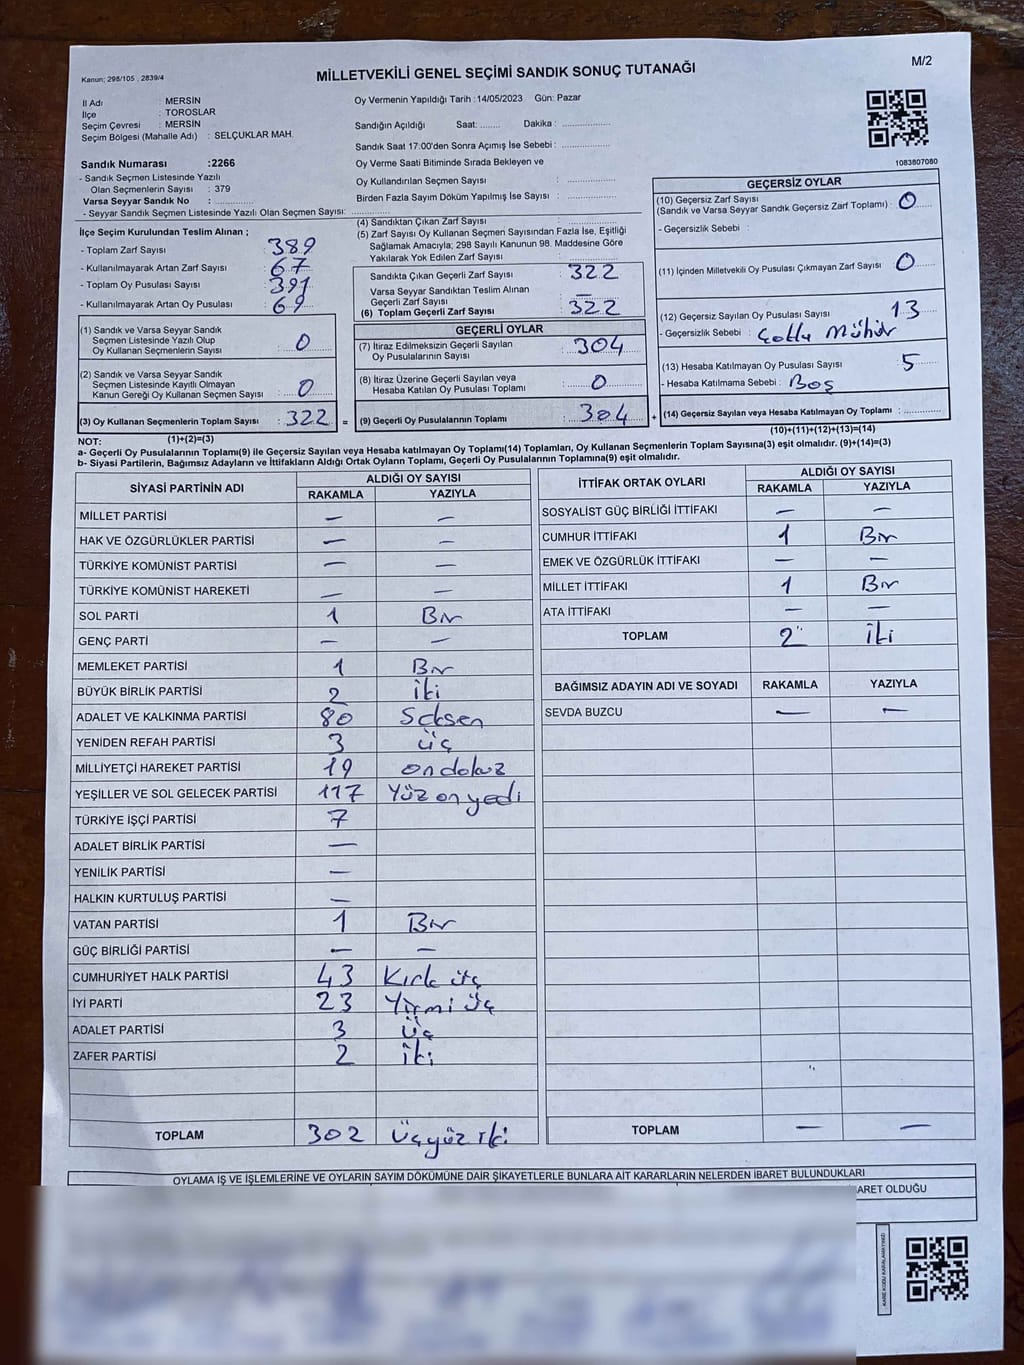 Kanun; 298/105 , 2839/4
MİLLETVEKİLİ GENEL SEÇİMİ SANDIK SONUÇ TUTANAĞI
M/2
İl Adı : MERSİN
İlçe : TOROSLAR
Seçim Çevresi : MERSİN
Seçim Bölgesi (Mahalle Adı) : SELÇUKLAR MAH.
Sandık Numarası :2266
- Sandık Seçmen Listesinde Yazılı
Olan Seçmenlerin Sayısı : 379
Varsa Seyyar Sandık No : ..............
- Seyyar Sandık Seçmen Listesinde Yazılı Olan Seçmen Sayısı: ..............
Oy Vermenin Yapıldığı Tarih :14/05/2023 Gün: Pazar
Sandığın Açıldığı Saat: ........ Dakika : ..................
Sandık Saat 17:00'den Sonra Açımış İse Sebebi : ..................
Oy Verme Saati Bitiminde Sırada Bekleyen ve
Oy Kullandırılan Seçmen Sayısı : ..................
Birden Fazla Sayım Döküm Yapılmış İse Sayısı : ..................
1083807080
İlçe Seçim Kurulundan Teslim Alınan ;
- Toplam Zarf Sayısı : 389
- Kullanılmayarak Artan Zarf Sayısı : 67
- Toplam Oy Pusulası Sayısı : 391
- Kullanılmayarak Artan Oy Pusulası : 69
(1) Sandık ve Varsa Seyyar Sandık
Seçmen Listesinde Yazılı Olup
Oy Kullanan Seçmenlerin Sayısı : 0
(2) Sandık ve Varsa Seyyar Sandık
Seçmen Listesinde Kayıtlı Olmayan
Kanun Gereği Oy Kullanan Seçmen Sayısı : 0
(3) Oy Kullanan Seçmenlerin Toplam Sayısı : 322 =
(4) Sandıktan Çıkan Zarf Sayısı : ..................
(5) Zarf Sayısı Oy Kullanan Seçmen Sayısından Fazla İse, Eşitliği
Sağlamak Amacıyla; 298 Sayılı Kanunun 98. Maddesine Göre
Yakılarak Yok Edilen Zarf Sayısı : ..................
Sandıkta Çıkan Geçerli Zarf Sayısı : 322
Varsa Seyyar Sandıktan Teslim Alınan
Geçerli Zarf Sayısı : —
(6) Toplam Geçerli Zarf Sayısı : 322
GEÇERLİ OYLAR
(7) İtiraz Edilmeksizin Geçerli Sayılan
Oy Pusulalarının Sayısı : 304
(8) İtiraz Üzerine Geçerli Sayılan veya
Hesaba Katılan Oy Pusulası Toplamı : 0
(9) Geçerli Oy Pusulalarının Toplamı : 304 +
GEÇERSİZ OYLAR
(10) Geçersiz Zarf Sayısı
(Sandık ve Varsa Seyyar Sandık Geçersiz Zarf Toplamı) : 0
- Geçersizlik Sebebi :
(11) İçinden Milletvekili Oy Pusulası Çıkmayan Zarf Sayısı : 0
(12) Geçersiz Sayılan Oy Pusulası Sayısı : 13
- Geçersizlik Sebebi : Çoklu Mühür
(13) Hesaba Katılmayan Oy Pusulası Sayısı : 5
- Hesaba Katılmama Sebebi : Boş
(14) Geçersiz Sayılan veya Hesaba Katılmayan Oy Toplamı : ............
(10)+(11)+(12)+(13)=(14)
NOT: (1)+(2)=(3)
a- Geçerli Oy Pusulalarının Toplamı(9) ile Geçersiz Sayılan veya Hesaba katılmayan Oy Toplamı(14) Toplamları, Oy Kullanan Seçmenlerin Toplam Sayısına(3) eşit olmalıdır. (9)+(14)=(3)
b- Siyasi Partilerin, Bağımsız Adayların ve İttifakların Aldığı Ortak Oyların Toplamı, Geçerli Oy Pusulalarının Toplamına(9) eşit olmalıdır.
SİYASİ PARTİNİN ADI ALDIĞI OY SAYISI
RAKAMLA YAZIYLA
MİLLET PARTİSİ — —
HAK VE ÖZGÜRLÜKLER PARTİSİ — —
TÜRKİYE KOMÜNİST PARTİSİ — —
TÜRKİYE KOMÜNİST HAREKETİ — —
SOL PARTİ 1 Bir
GENÇ PARTİ — —
MEMLEKET PARTİSİ 1 Bir
BÜYÜK BİRLİK PARTİSİ 2 iki
ADALET VE KALKINMA PARTİSİ 80 Seksen
YENİDEN REFAH PARTİSİ 3 üç
MİLLİYETÇİ HAREKET PARTİSİ 19 ondokuz
YEŞİLLER VE SOL GELECEK PARTİSİ 117 Yüz onyedi
TÜRKİYE İŞÇİ PARTİSİ 7
ADALET BİRLİK PARTİSİ —
YENİLİK PARTİSİ —
HALKIN KURTULUŞ PARTİSİ —
VATAN PARTİSİ 1 Bir
GÜÇ BİRLİĞİ PARTİSİ — —
CUMHURİYET HALK PARTİSİ 43 Kırk üç
İYİ PARTİ 23 Yirmi üç
ADALET PARTİSİ 3 Üç
ZAFER PARTİSİ 2 iki
TOPLAM 302 Üçyüz iki
İTTİFAK ORTAK OYLARI ALDIĞI OY SAYISI
RAKAMLA YAZIYLA
SOSYALİST GÜÇ BİRLİĞİ İTTİFAKI — —
CUMHUR İTTİFAKI 1 Bir
EMEK VE ÖZGÜRLÜK İTTİFAKI — —
MİLLET İTTİFAKI 1 Bir
ATA İTTİFAKI — —
TOPLAM 2 iki
BAĞIMSIZ ADAYIN ADI VE SOYADI RAKAMLA YAZIYLA
SEVDA BUZCU — —
TOPLAM — —
OYLAMA İŞ VE İŞLEMLERİNE VE OYLARIN SAYIM DÖKÜMÜNE DAİR ŞİKAYETLERLE BUNLARA AİT KARARLARIN NELERDEN İBARET BULUNDUKLARI
ARET OLDUĞU